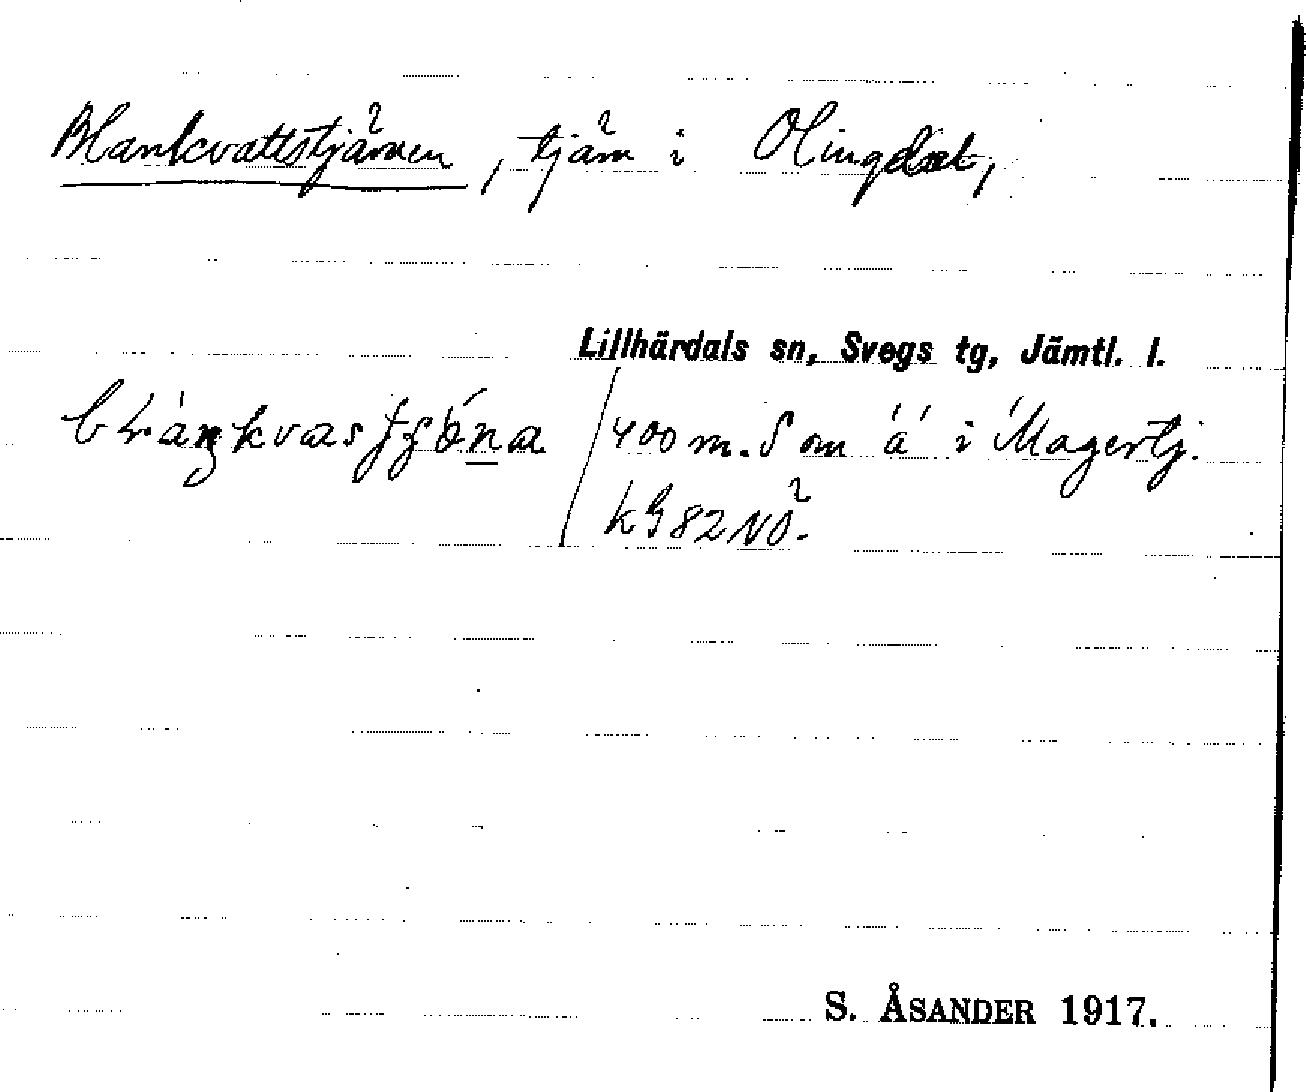 Blankvattstjärnen, tjärn i Olingdal,
Lillhärdals sn, Svegs tg, Jämtl. l.
400 m. S om å i Magertj.
k982NÖ.
S. ÅSANDER 1917.